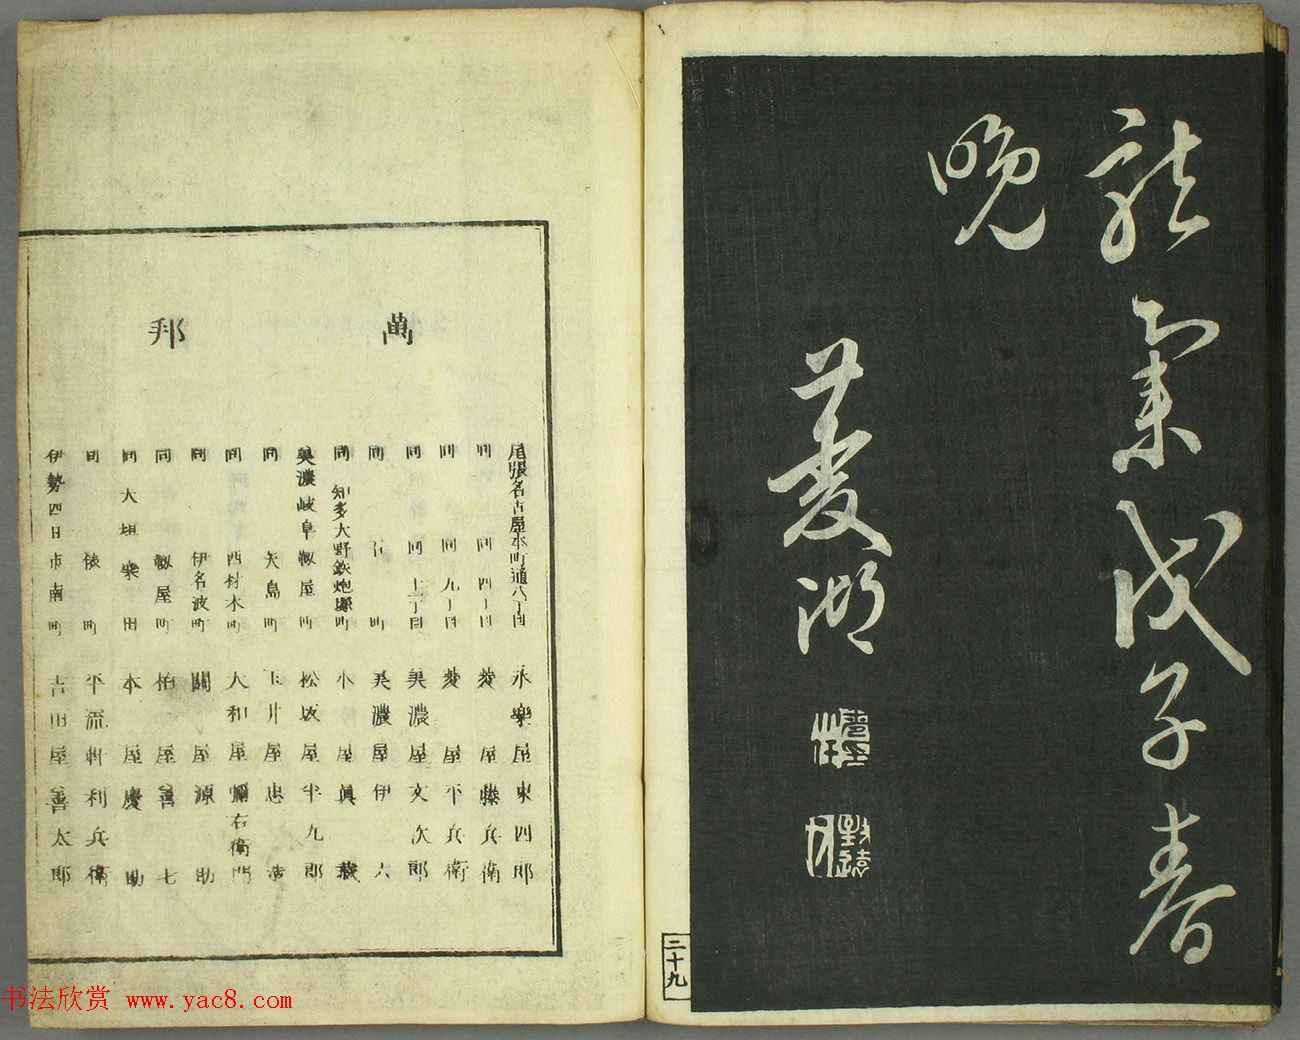 龍集戊子春
晩
菱湖
二十九
萬邦
尾張名古屋本町通八丁目 永樂屋東四郎
同 同四丁目 菱屋藤兵衛
同 同九丁目 菱屋平兵衛
同 同十一丁目 美濃屋文次郎
同 石町 美濃屋伊六
同 知多大野鉄炮塲町 小屋眞藏
美濃岐阜靱屋町 松坂屋半九郎
同 矢島町 玉井屋忠
同 西材木町 大和屋彌右衛門
同 伊名波町 關屋源助
同 靱屋町 柏屋善七
同 大垣樂田 本屋慶助
同 俵町 平流軒利兵衛
伊勢四日市南町 吉田屋善太郎
书法欣赏 www.yac8.com